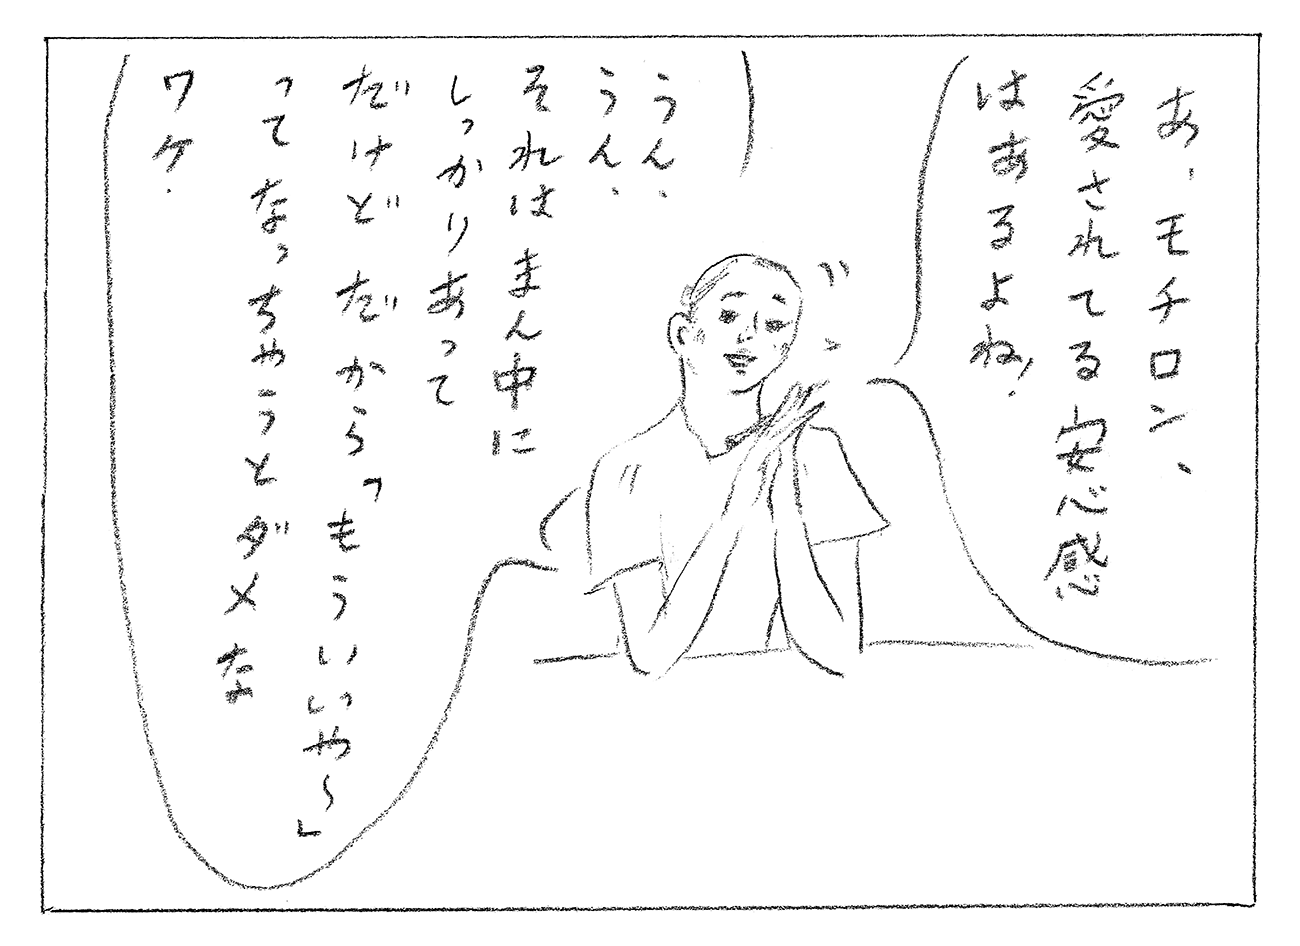 あ、モチロン、
愛されてる安心感
はあるよね!
うん、
うん、
それはまん中に
しっかりあって
だけどだから「もういいっや〜」
ってなっちゃうとダメな
ワケ.